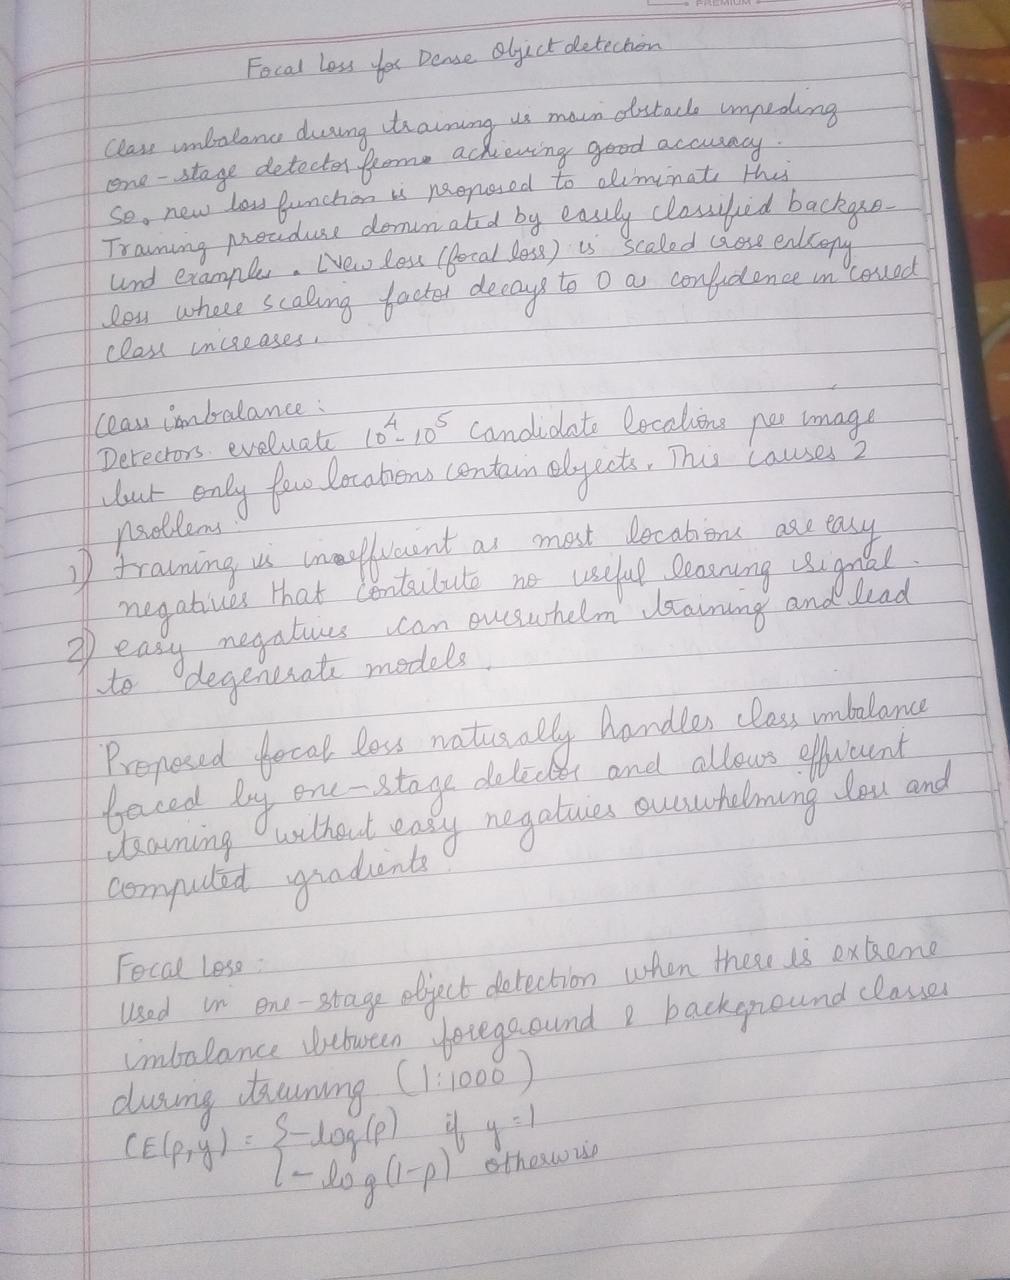 PREMIUM
Focal Loss for Dense Object detection
Class imbalance during training is main obstacle impeding
one-stage detector from achieving good accuracy.
So, new loss function is proposed to eliminate this
Training procedure dominated by easily classified backgro-
und examples. New loss (focal loss) is scaled cross entropy
loss where scaling factor decays to 0 as confidence in correct
class increases.
Class imbalance:
Detectors evaluate 10⁴-10⁵ candidate locations per image
but only few locations contain objects. This causes 2
problems.
1) training is inefficient as most locations are easy
negatives that contribute no useful learning signal.
2) easy negatives can overwhelm training and lead
to degenerate models.
Proposed focal loss naturally handles class imbalance
faced by one-stage detector and allows efficient
training without easy negatives overwhelming loss and
computed gradients.
Focal Loss:
Used in one-stage object detection when there is extreme
imbalance between foreground & background classes
during training (1:1000)
CE(p,y) = { -log(p) if y=1
{ -log(1-p) otherwise